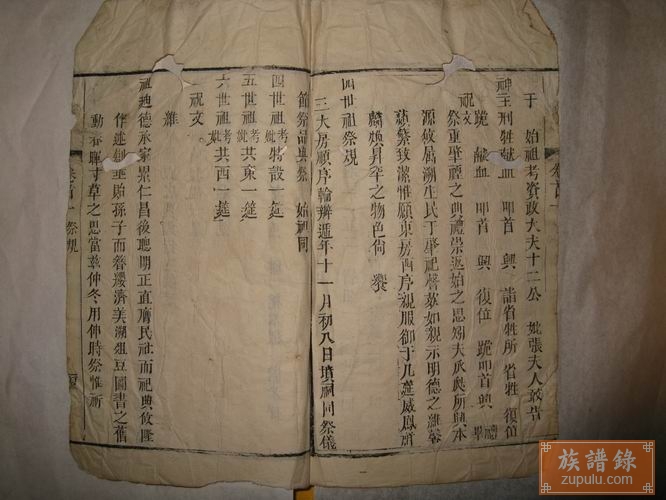 于 始祖考資政大夫十二公 妣張夫人敢告
神主刑牲献血 叩首 興 詣省牲所 省牲 復位
跪 献血 叩首 興 復位 跪叩首興 畢
祝文
祭重肇禋之典禮崇返始之思矧大承爽所興本
源攸属溯生民于肇祀馨莪如親示明德之維馨
蘋蘩致潔惟願東房西序親服御于几筵威鳳祥
麟煥昇平之物色尙 饗
四世祭規
三大房順序輪辦遞年十一月初八日墳祠同祭儀
節祭品與祭 始祖同
四世祖考妣特設一筵
五世祖考妣共東一筵
六世祖考妣共西一筵
祝文
維
祖廸德承家累仁昌後聰明正直膺民社而祀典攸隆
作述創垂貽孫子而簪纓濟美溯俎豆圖書之舊
動春暉寸草之思當茲仲冬用伸時祭惟祈
卷首 祭規
族譜錄
zupulu.com